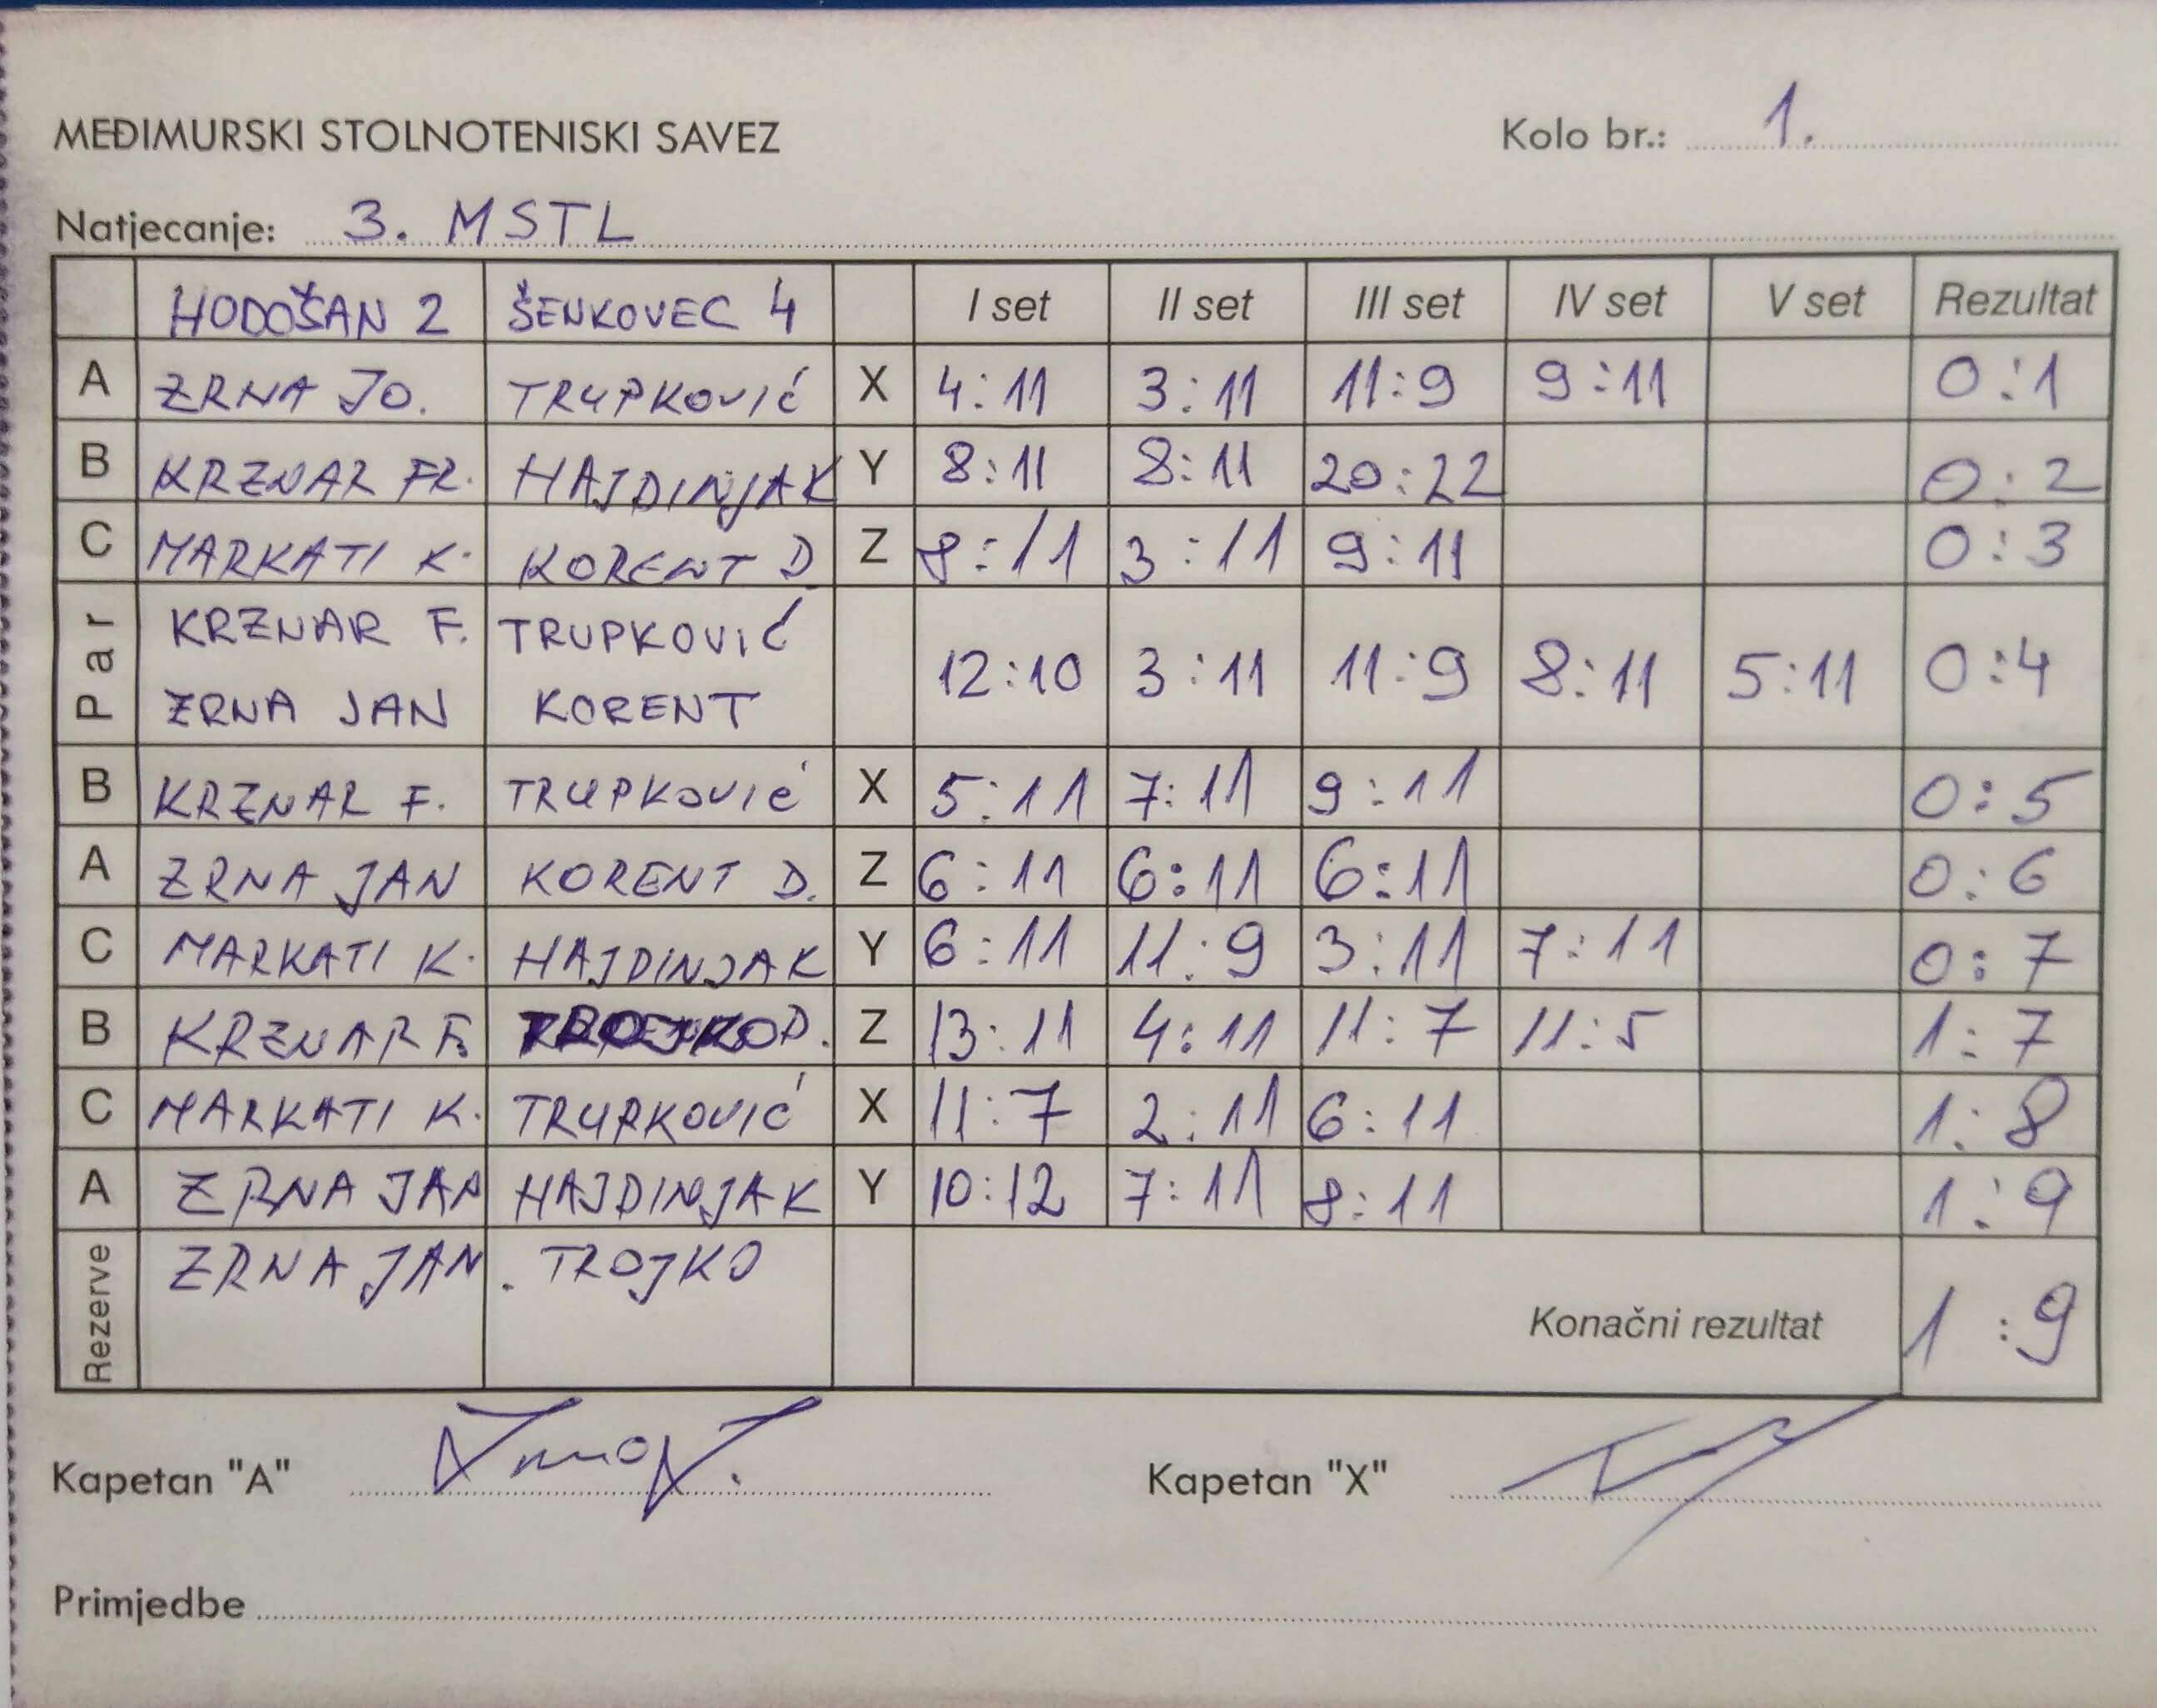 MEĐIMURSKI STOLNOTENISKI SAVEZ Kolo br.: 1.
Natjecanje: 3. MSTL
HODOŠAN 2 ŠENKOVEC 4 I set II set III set IV set V set Rezultat
A ZRNA JO. TRUPKOVIĆ X 4:11 3:11 11:9 9:11 0:1
B KRZNAR FR. HAJDINJAK Y 8:11 8:11 20:22 0:2
C MARKATI K. KORENT D Z 8:11 3:11 9:11 0:3
Par KRZNAR F. TRUPKOVIĆ 12:10 3:11 11:9 8:11 5:11 0:4
ZRNA JAN KORENT
B KRZNAR F. TRUPKOVIĆ X 5:11 7:11 9:11 0:5
A ZRNA JAN KORENT D. Z 6:11 6:11 6:11 0:6
C MARKATI K. HAJDINJAK Y 6:11 11:9 3:11 7:11 0:7
B KRZNAR F. TROJKO D. Z 13:11 4:11 11:7 11:5 1:7
C MARKATI K. TRUPKOVIĆ X 11:7 2:11 6:11 1:8
A ZRNA JAN HAJDINJAK Y 10:12 7:11 8:11 1:9
Rezerve ZRNA JAN. TROJKO
Konačni rezultat 1:9
Kapetan "A" Kapetan "X"
Primjedbe